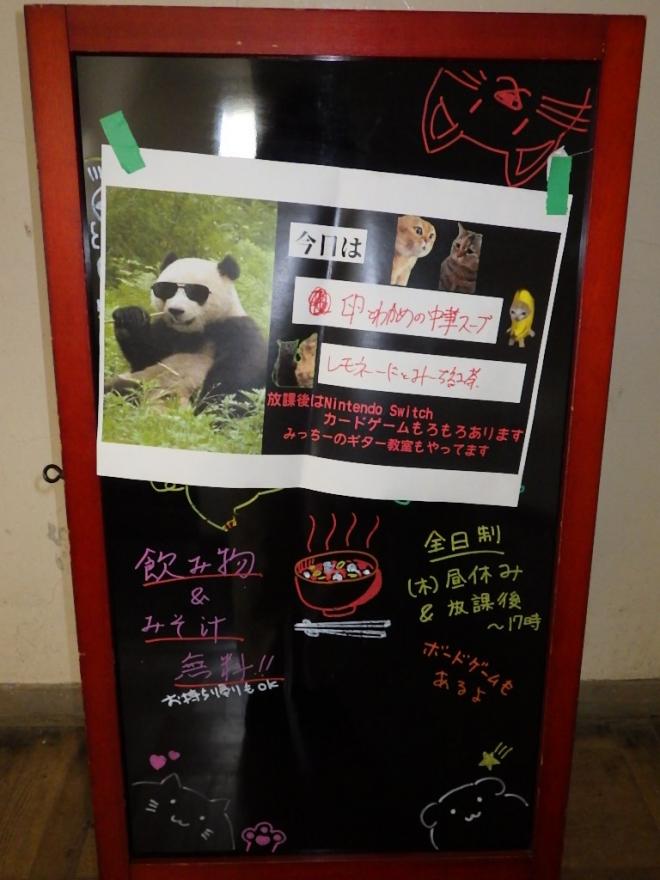 今日は
卵とわかめの中華スープ
レモネードと
放課後はNintendo Switch
カードゲームもろもろあります
みっちーのギター教室もやってます
飲み物
&
みそ汁
無料!!
お持ち帰りもOK
全日制
(木)昼休み
& 放課後
～17時
ボードゲームも
あるよ